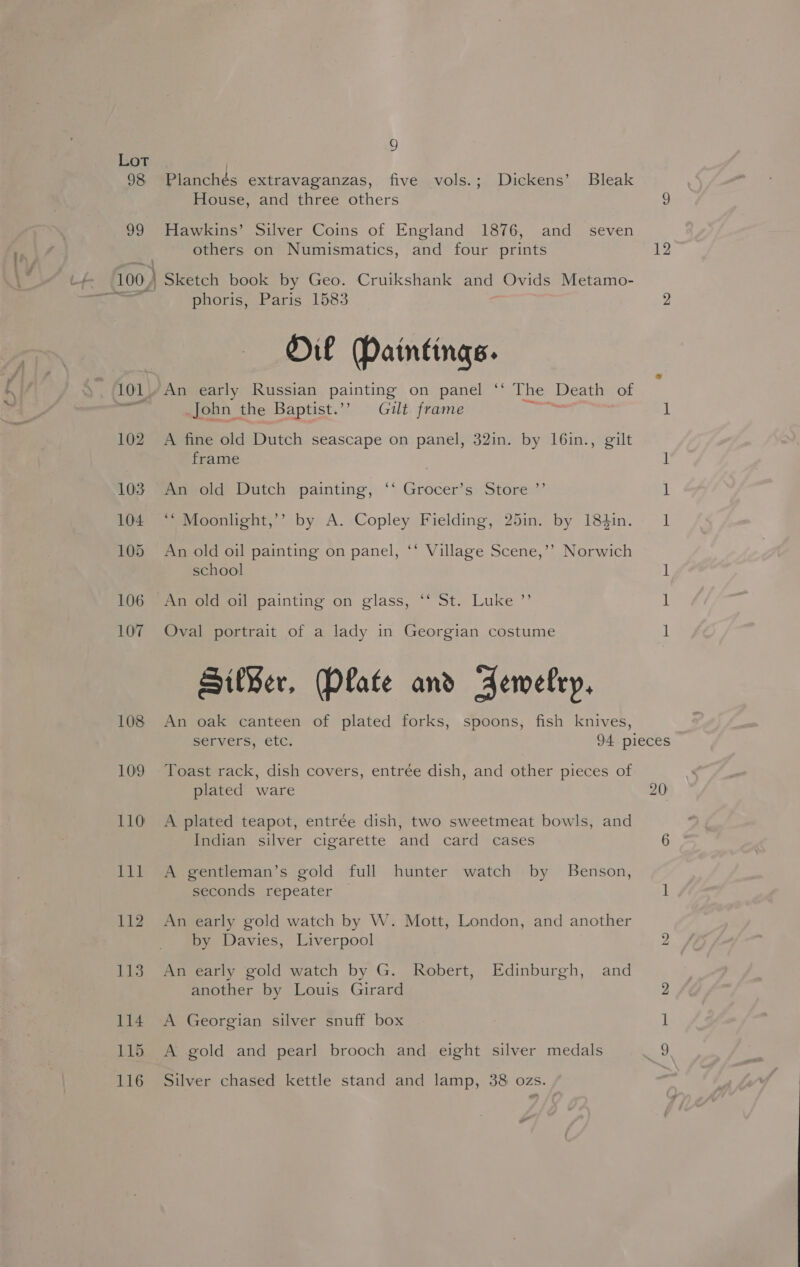 9
Lot
98 Planchés extravaganzas, five vols.; Dickens' Bleak
House, and three others 9
99 Hawkins' Silver Coins of England 1876, and seven
others on Numismatics, and four prints 12
100 Sketch book by Geo. Cruikshank and Ovids Metamo-
phoris, Paris 1583 2
Oil Paintings.
101 An early Russian painting on panel “ The Death of
John the Baptist.” Gilt frame 1
102 A fine old Dutch seascape on panel, 32in. by 16in., gilt
frame 1
103 An old Dutch painting, “ Grocer's Store ” 1
104 “ Moonlight,” by A. Copley Fielding, 25in. by 18½in. 1
105 An old oil painting on panel, “ Village Scene,” Norwich
school 1
106 An old oil painting on glass, “ St. Luke ” 1
107 Oval portrait of a lady in Georgian costume 1
Silver, Plate and Jewelry.
108 An oak canteen of plated forks, spoons, fish knives,
servers, etc. 94 pieces
109 Toast rack, dish covers, entrée dish, and other pieces of
plated ware 20
110 A plated teapot, entrée dish, two sweetmeat bowls, and
Indian silver cigarette and card cases 6
111 A gentleman's gold full hunter watch by Benson,
seconds repeater 1
112 An early gold watch by W. Mott, London, and another
by Davies, Liverpool 2
113 An early gold watch by G. Robert, Edinburgh, and
another by Louis Girard 2
114 A Georgian silver snuff box 1
115 A gold and pearl brooch and eight silver medals 9
116 Silver chased kettle stand and lamp, 38 ozs.